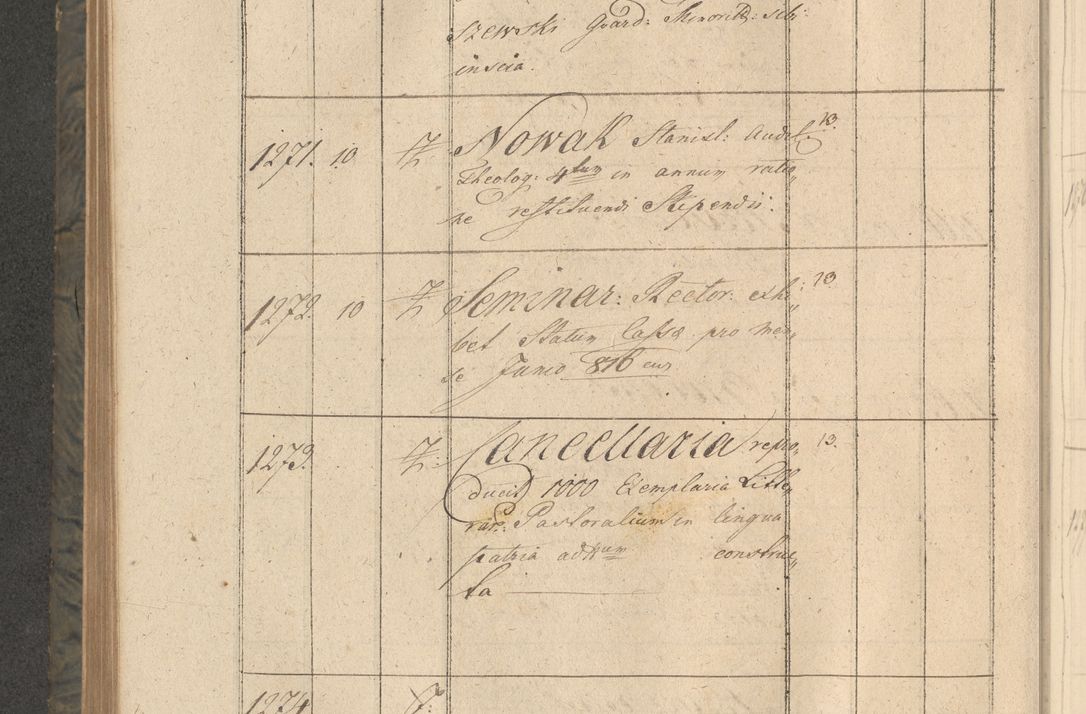 szewski Guard: Minorit: sibi
inscia.
1271. 10 7. Nowak Stanisl: Audit. 13.
Theolog: 4tum in annum ratio„
ne restituendi Stipendii.
1272. 10 7. Seminar: Rector: exhi„ 13.
bet Statum Cassæ pro men„
se Junio 816
1273. 7. Cancellaria repro„ 13.
ducit 1000 Exemplaria Litte„
rar: Pastoralium in lingua
patria construc„
ta
1274. 7.